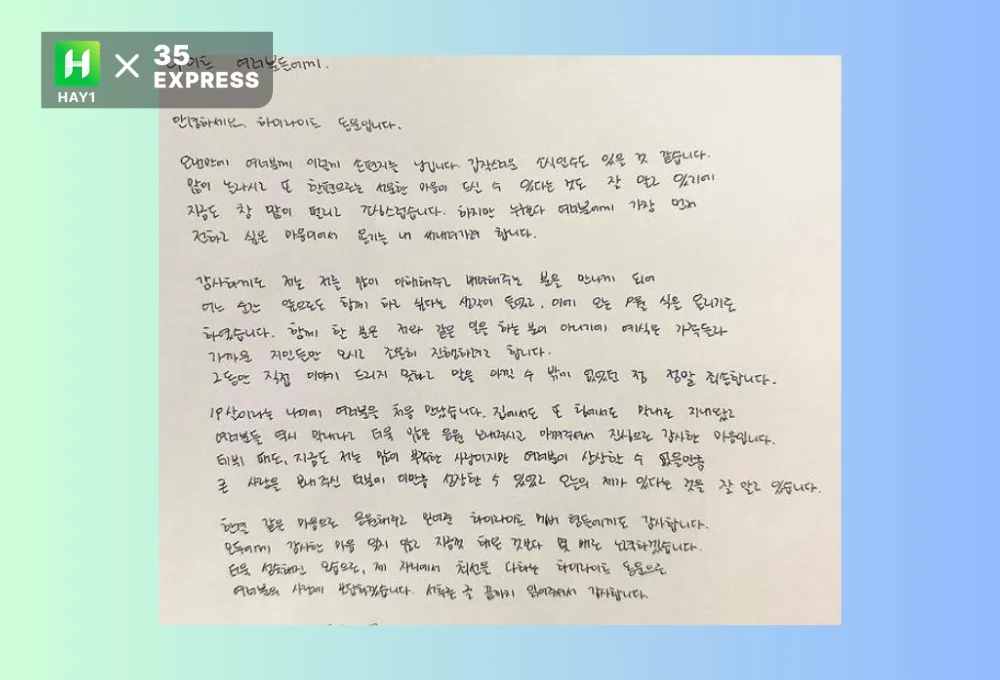 H
HAY1
35
EXPRESS
여러분들에게.
안녕하세요. 하이라이트 동운입니다.
오랜만에 여러분께 이렇게 손편지를 남깁니다. 갑작스러운 소식일수도 있을 것 같습니다.
많이 놀라시고 또 한편으로는 서운한 마음이 드실 수 있다는 것도 잘 알고 있기에
지금도 참 맘이 떨리고 조심스럽습니다. 하지만 누구보다 여러분에게 가장 먼저
전하고 싶은 마음이어서 용기를 내 써내려가려 합니다.
감사하게도 저는 저를 많이 이해해주고 배려해주는 분을 만나게 되어
어느 순간 앞으로도 함께 하고 싶다는 생각이 들었고, 이에 오는 9월 식을 올리기로
하였습니다. 함께 한 분은 저와 같은 일을 하는 분이 아니기에 예식은 가족들과
가까운 지인들만 모시고 조용히 진행하려고 합니다.
그동안 직접 이야기 드리지 못하고 말을 아낄 수 밖에 없었던 점 정말 죄송합니다.
19살이라는 나이에 여러분을 처음 만났습니다. 집에서도 또 팀에서도 막내로 지내왔고
여러분들 역시 막내라고 더욱 많은 응원 보내주시고 아껴주셔서 진심으로 감사한 마음입니다.
데뷔 때도, 지금도 저는 많이 부족한 사람이지만 여러분이 상상할 수 없을만큼
큰 사랑을 보내주신 덕분에 이만큼 성장할 수 있었고 오늘의 제가 있다는 것을 잘 알고 있습니다.
한결 같은 마음으로 응원해주고 믿어준 하이라이트 멤버 형들에게도 감사합니다.
모두에게 감사한 마음 잊지 않고 지금껏 해온 것보다 몇 배로 노력하겠습니다.
더욱 성숙해진 모습으로, 제 자리에서 최선을 다하는 하이라이트 동운으로
여러분의 사랑에 보답하겠습니다. 서툰 글 끝까지 읽어주셔서 감사합니다.